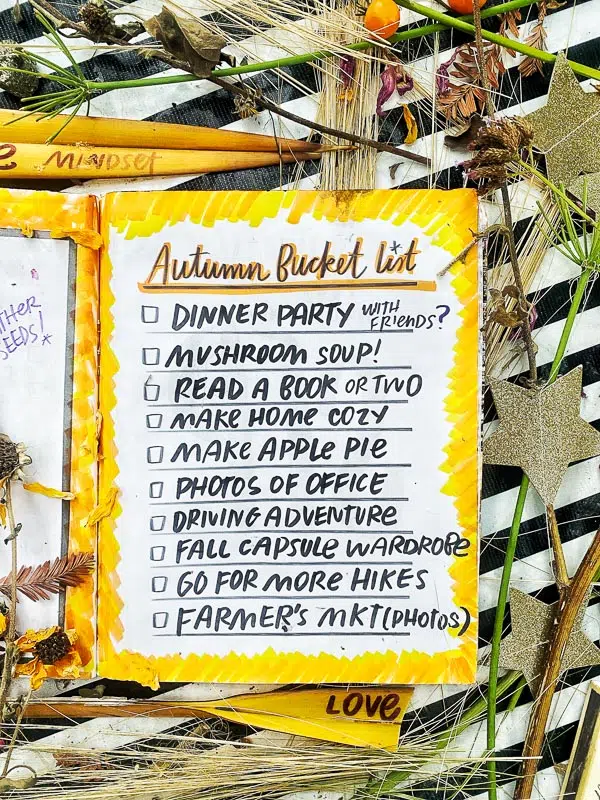 MINDSET
THER
SEEDS!
Autumn Bucket list
DINNER PARTY WITH FRIENDS?
MUSHROOM SOUP!
READ A BOOK OR TWO
MAKE HOME COZY
MAKE APPLE PIE
PHOTOS OF OFFICE
DRIVING ADVENTURE
FALL CAPSULE WARDROBE
GO FOR MORE HIKES
FARMER'S MKT (PHOTOS)
LOVE